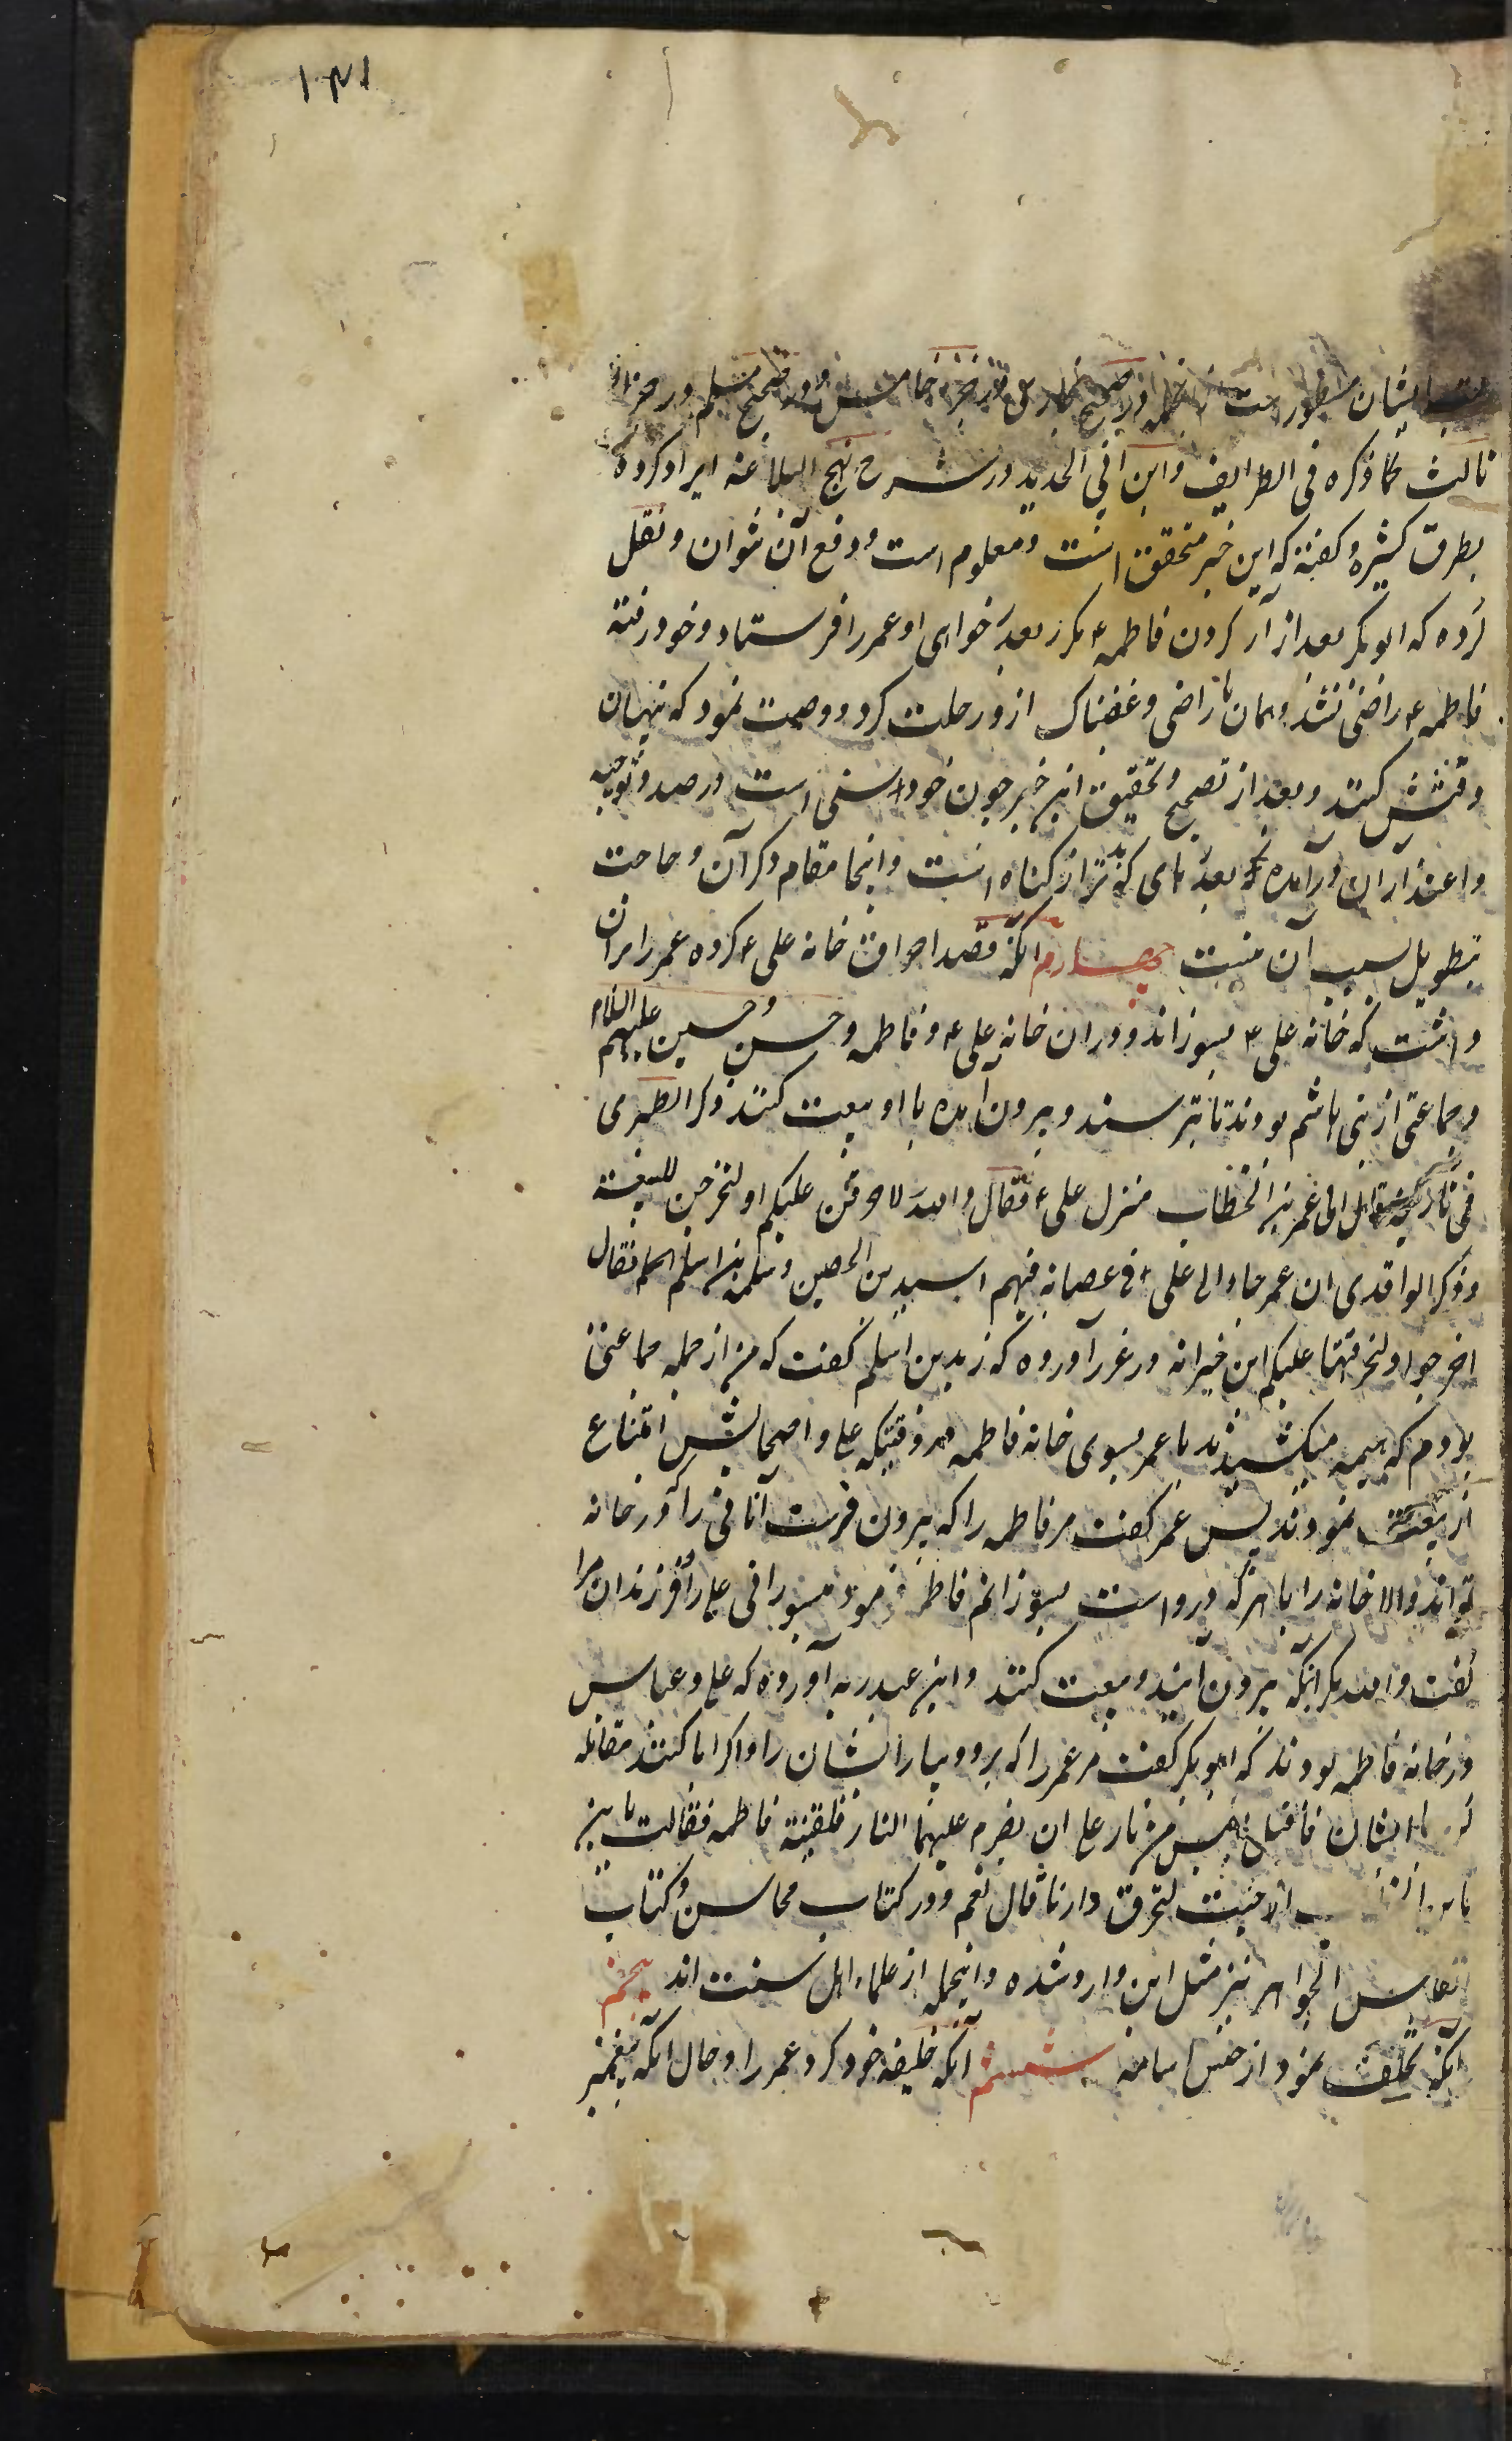 ۱۰۳۱
کتب ایشان مسطور است از آنجمله در صحیح بخاری در جزء خامس و در صحیح مسلم در جزء
ثالث کما ذکره فی الطرایف و ابن ابی الحدید در شرح نهج البلاغه ایراد کرده
بطرق کثیره و گفته که این خبر متحقق است و معلوم است و دفع آن نتوان و نقل
کرده که ابوبکر بعد از آزار کردن فاطمه ع مکرر بعذر خواهی او عمر را فرستاد و خود رفته
فاطمه ع راضی نشد و همان ناراضی و غضبناک ازو رحلت کرد و وصیت نمود که پنهان
دفنش کنند و بعد از تصحیح و تحقیق این خبر چون خود سنی است در صدد توجیه
و اعتذار آن در آمده نه بعذرهای که بدتر از گناه است و اینجا مقام ذکر آن و حاجت
بتطویل بسبب آن نیست چهارم آنکه قصد احراق خانه علی ع کرده عمر را بر آن
داشت که خانه علی ع بسوزاند و در آن خانه علی ع و فاطمه و حسن و حسین علیهم السلام
و جماعتی از بنی هاشم بودند تا بترسند و بیرون آمده با او بیعت کنند ذکر الطبری
فی تاریخه قال اتی عمر بن الخطاب منزل علی ع فقال والله لاحرقن علیکم او لتخرجن للبیعة
و ذکر الواقدی ان عمر جاء الی علی ع فی عصابه فیهم اسید بن الحصین و سلمه بن اسلم فقال
اخرجوا او لنحرقنها علیکم ابن خیرانه در غرر آورده که زید بن اسلم گفت که من از جمله جماعتی
بودم که هیمه میکشیدند با عمر بسوی خانه فاطمه در وقتیکه علی و اصحابش امتناع
از بیعت نمودند پس عمر گفت مر فاطمه را که بیرون فرست آنانی را که در خانه
تواند و الا خانه را با هر که درو است بسوزانم فاطمه فرمود میسوزانی علی را و فرزندان مرا
گفت والله مگر اینکه بیرون آیند و بیعت کنند و ابن عبد ربه آورده که علی و عباس
در خانه فاطمه بودند که ابوبکر گفت مر عمر را که برو و بیار ایشان را و اگر ابا کنند مقاتله
کن با ایشان فأقبل بقبس من نار علی ان یضرم علیهما النار فلقیته فاطمه فقالت یا بن
الخطاب اجئت لتحرق دارنا قال نعم و در کتاب محاسن و کتاب
انفاس الجواهر نیز مثل این وارد شده و اینجمله از علماء اهل سنت اند پنجم
آنکه تخلف نمود از جیش اسامه ششم آنکه خلیفه خود کرد عمر را و حال آنکه پیغمبر